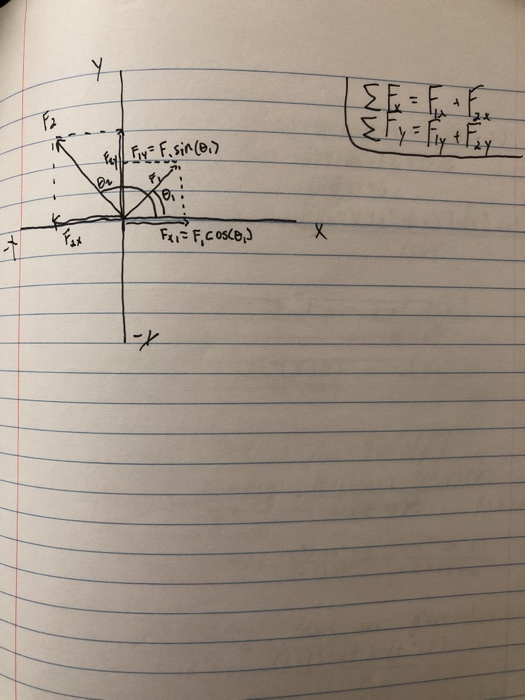 Y
ΣFx = F1x + F2x
ΣFy = F1y + F2y
F2
F2y
F1y = F1 sin(θ1)
θ2
F1
θ1
F2x
Fx1 = F1 cos(θ1)
X
-Y